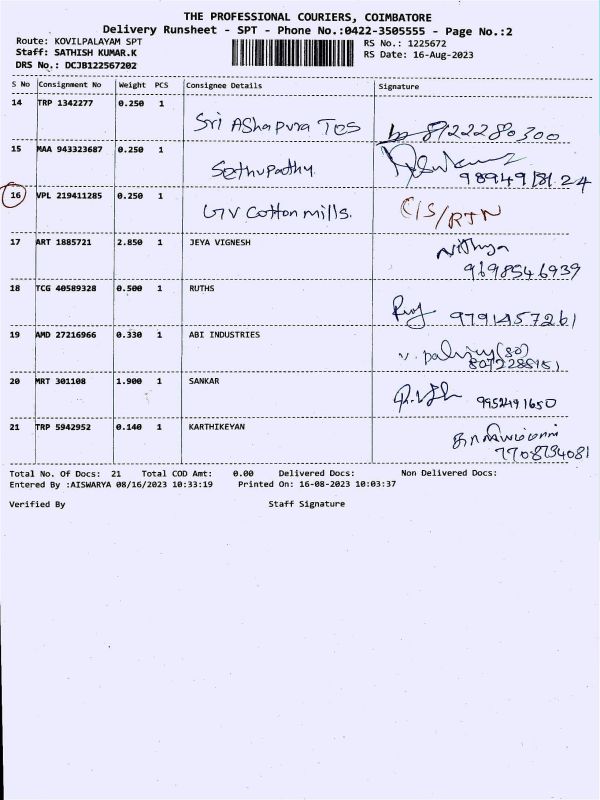 THE PROFESSIONAL COURIERS, COIMBATORE
Delivery Runsheet - SPT - Phone No.:0422-3505555 - Page No.:2
Route: KOVILPALAYAM SPT RS No.: 1225672
Staff: SATHISH KUMAR.K RS Date: 16-Aug-2023
DRS No.: DCJB122567202
S No Consignment No Weight PCS Consignee Details Signature
14 TRP 1342277 0.250 1 Sri Ashapura TOS 8122280300
15 MAA 943323687 0.250 1 Sethupathy. 9894918124
16 VPL 219411285 0.250 1 GV Cotton mills. C/S/RTN
17 ART 1885721 2.850 1 JEYA VIGNESH Nithya
9698546939
18 TCG 40589328 0.500 1 RUTHS 9791457261
19 AMD 27216966 0.330 1 ABI INDUSTRIES
20 MRT 301108 1.900 1 SANKAR 9952491650
21 TRP 5942952 0.140 1 KARTHIKEYAN
7708794081
Total No. Of Docs: 21 Total COD Amt: 0.00 Delivered Docs: Non Delivered Docs:
Entered By :AISWARYA 08/16/2023 10:33:19 Printed On: 16-08-2023 10:03:37
Verified By Staff Signature